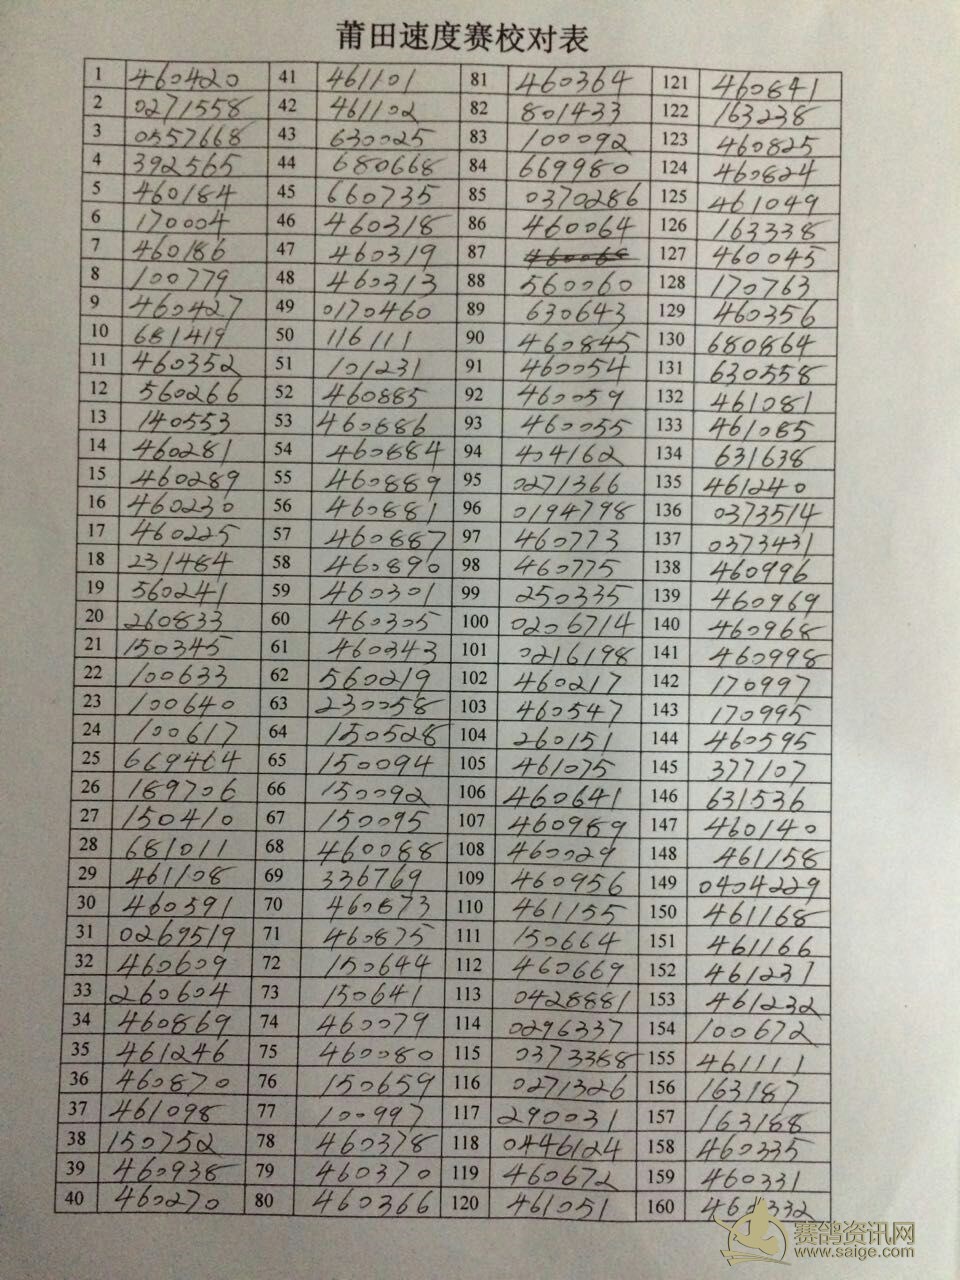 莆田速度赛校对表
1 460420 41 461101 81 460364 121 460841
2 0271558 42 461102 82 801433 122 163238
3 0557668 43 630025 83 100092 123 460825
4 392565 44 680668 84 669980 124 460824
5 460184 45 660735 85 0370286 125 461049
6 170004 46 460318 86 460064 126 163338
7 460186 47 460319 87 127 460045
8 100779 48 460313 88 560060 128 170763
9 460427 49 0170460 89 630643 129 460356
10 681419 50 116111 90 460845 130 680864
11 460352 51 101231 91 460054 131 630558
12 560266 52 460885 92 460059 132 461081
13 140553 53 460886 93 460055 133 461085
14 460281 54 460884 94 404162 134 631638
15 460289 55 460889 95 0271366 135 461240
16 460230 56 460881 96 0194798 136 0373514
17 460225 57 460887 97 460773 137 0373431
18 231484 58 460890 98 460775 138 460996
19 560241 59 460301 99 250335 139 460969
20 260833 60 460305 100 0206714 140 460968
21 150345 61 460343 101 0216198 141 460998
22 100633 62 560219 102 460217 142 170997
23 100640 63 230058 103 460547 143 170995
24 100617 64 150528 104 260151 144 460595
25 669464 65 150094 105 461075 145 377107
26 189706 66 150092 106 460641 146 631536
27 150410 67 150095 107 460989 147 460140
28 681011 68 460088 108 460029 148 461158
29 461108 69 336769 109 460956 149 0404229
30 460591 70 460873 110 461155 150 461168
31 0269519 71 460875 111 150664 151 461166
32 460609 72 150644 112 460669 152 461237
33 260604 73 150641 113 0428881 153 461232
34 460869 74 460079 114 0296337 154 100672
35 461246 75 460080 115 0373388 155 461111
36 460870 76 150659 116 0271326 156 163187
37 461098 77 100997 117 290031 157 163168
38 150752 78 460378 118 0446124 158 460335
39 460938 79 460370 119 460672 159 460331
40 460270 80 460366 120 461051 160
赛鸽资讯网
www.saige.com